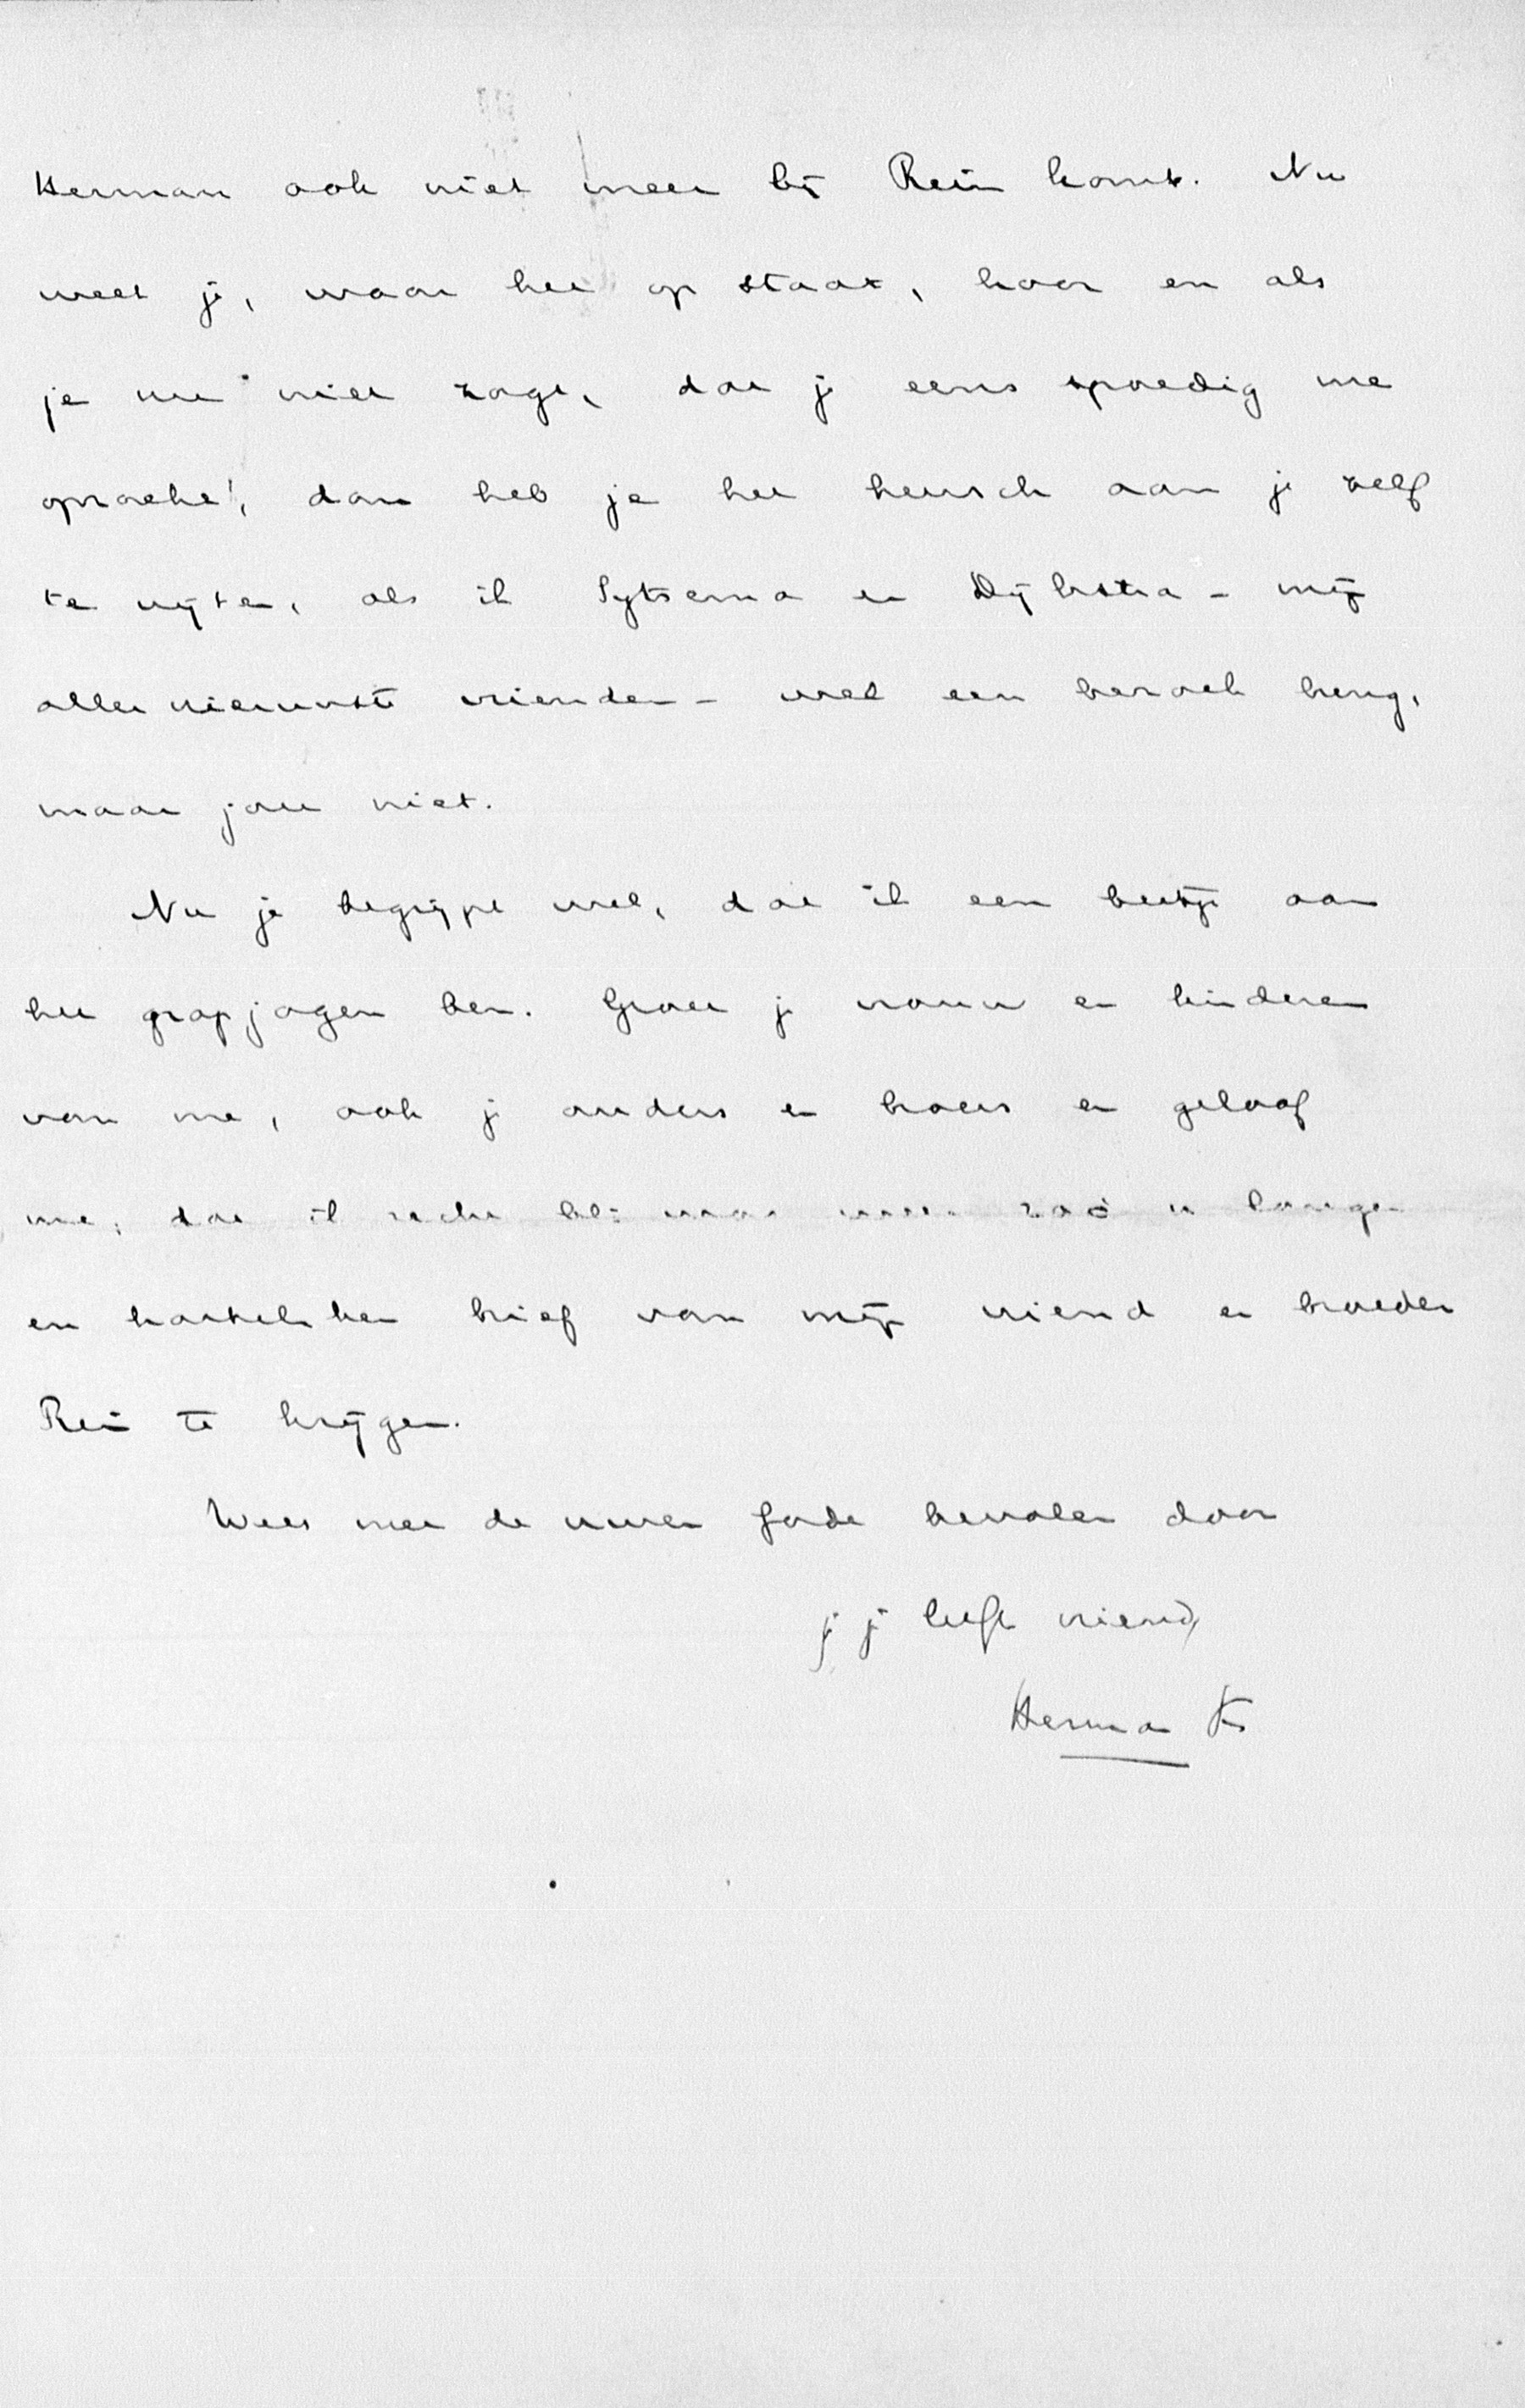 Herman ook niet meer bij Rein komt. Nu
weet je, waar het op staat, hoor en als
je nu niet zorgt, dat je eens spoedig me
opzoekt, dan heb je het heusch aan je zelf
te wijten, als ik Sytsema en Dijkstra - mijn
aller nieuwste vrienden - wel een bezoek breng,
maar jou niet.
Nu je begrijpt wel, dat ik een beetje aan
het grapjagen ben. Groet je vrouw en kinderen
van me, ook je ouders en broers en geloof
me, dat ik recht blij was weer zoo'n langen
en hartelijken brief van mijn vriend en broeder
Rein te krijgen.
Wees met de uwen Gode bevolen door
je je liefh vriend,
Herman Ks